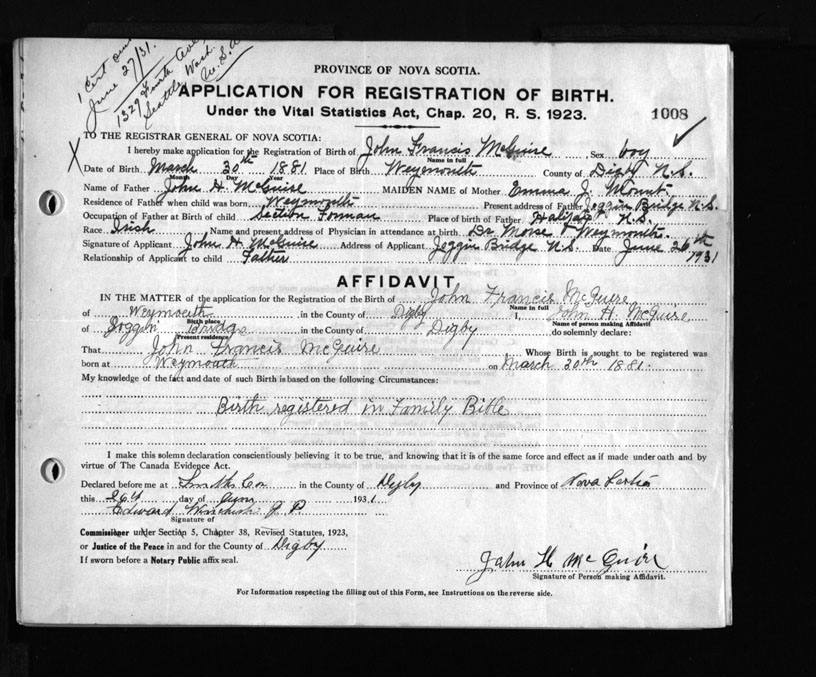 1 Cert
June 27/31.
1329 Fourth Ave
Seattle, Wash.
U. S. A
PROVINCE OF NOVA SCOTIA.
APPLICATION FOR REGISTRATION OF BIRTH.
Under the Vital Statistics Act, Chap. 20, R. S. 1923.
1008
TO THE REGISTRAR GENERAL OF NOVA SCOTIA:
I hereby make application for the Registration of Birth of John Francis McGuire, Sex boy
Name in full
Date of Birth March 30th 1881 Place of Birth Weymouth County of Digby N.S.
Month Day Year
Name of Father John H. McGuire MAIDEN NAME of Mother Emma J. Mount.
Residence of Father when child was born, Weymouth Present address of Father Joggin Bridge N.S.
Occupation of Father at Birth of child Section Forman Place of birth of Father Halifax N.S.
Race Irish Name and present address of Physician in attendance at birth Dr Morse Weymouth.
Signature of Applicant John H. McGuire Address of Applicant Joggin Bridge N.S. Date June 26th
1931
Relationship of Applicant to child Father
AFFIDAVIT.
IN THE MATTER of the application for the Registration of the Birth of John Francis McGuire
Name in full
of Weymouth in the County of Digby I, John H. McGuire
Birth place Name of person making Affidavit
of Joggin Bridge in the County of Digby do solemnly declare:
Present residence
That John Francis McGuire Whose Birth is sought to be registered was
born at Weymouth on March 30th 1881.
My knowledge of the fact and date of such Birth is based on the following Circumstances:
Birth registered in Family Bible
I make this solemn declaration conscientiously believing it to be true, and knowing that it is of the same force and effect as if made under oath and by
virtue of The Canada Evidence Act.
Declared before me at in the County of Digby and Province of Nova Scotia
this 26th day of June 1931
Edward J P
Signature of
Commissioner under Section 5, Chapter 38, Revised Statutes, 1923,
or Justice of the Peace in and for the County of Digby
If sworn before a Notary Public affix seal.
John H McGuire
Signature of Person making Affidavit.
For Information respecting the filling out of this Form, see Instructions on the reverse side.